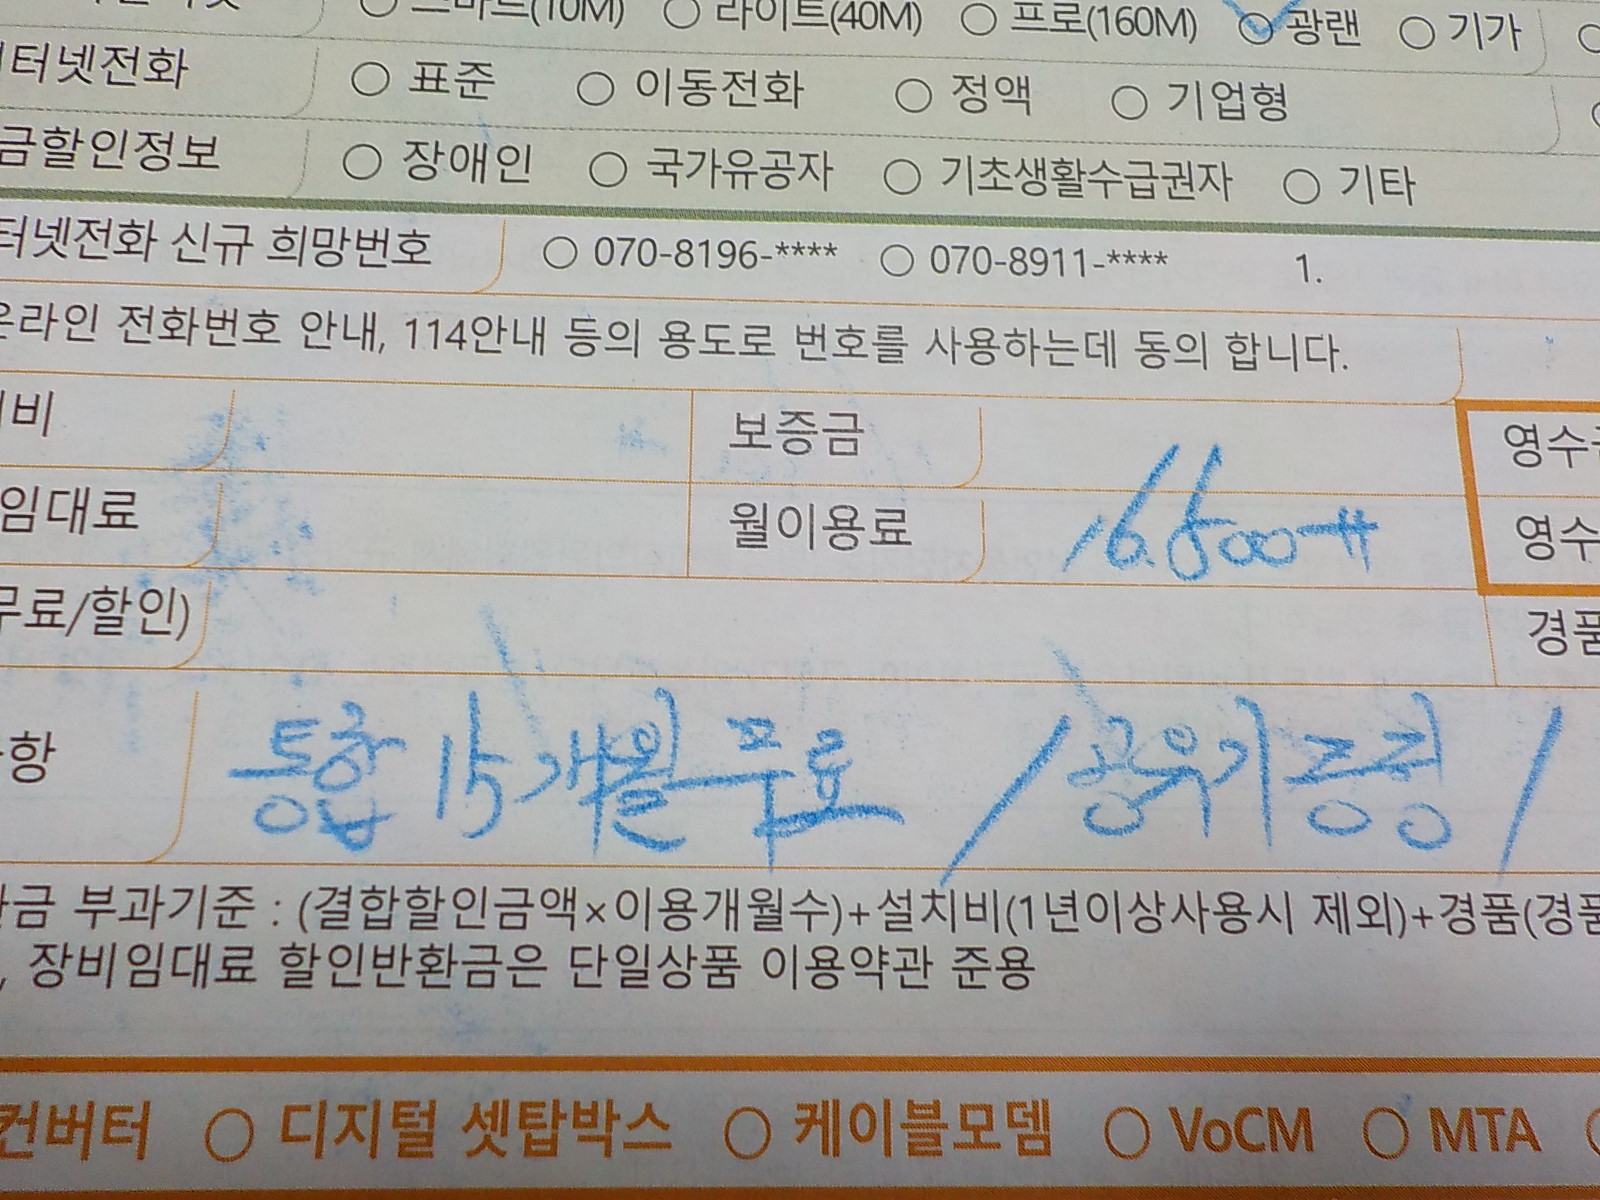 스마트(10M) 라이트(40M) 프로(160M) 광랜 기가
터넷전화 표준 이동전화 정액 기업형
금할인정보 장애인 국가유공자 기초생활수급권자 기타
터넷전화 신규 희망번호 070-8196-**** 070-8911-**** 1.
온라인 전화번호 안내, 114안내 등의 용도로 번호를 사용하는데 동의 합니다.
비 보증금 영수
임대료 월이용료 16.500 영수
무료/할인) 경품
항 통합 15개월 무료 / 공유기 증정 /
금 부과기준 : (결합할인금액×이용개월수)+설치비(1년이상사용시 제외)+경품(경품
, 장비임대료 할인반환금은 단일상품 이용약관 준용
컨버터 디지털 셋탑박스 케이블모뎀 VoCM MTA